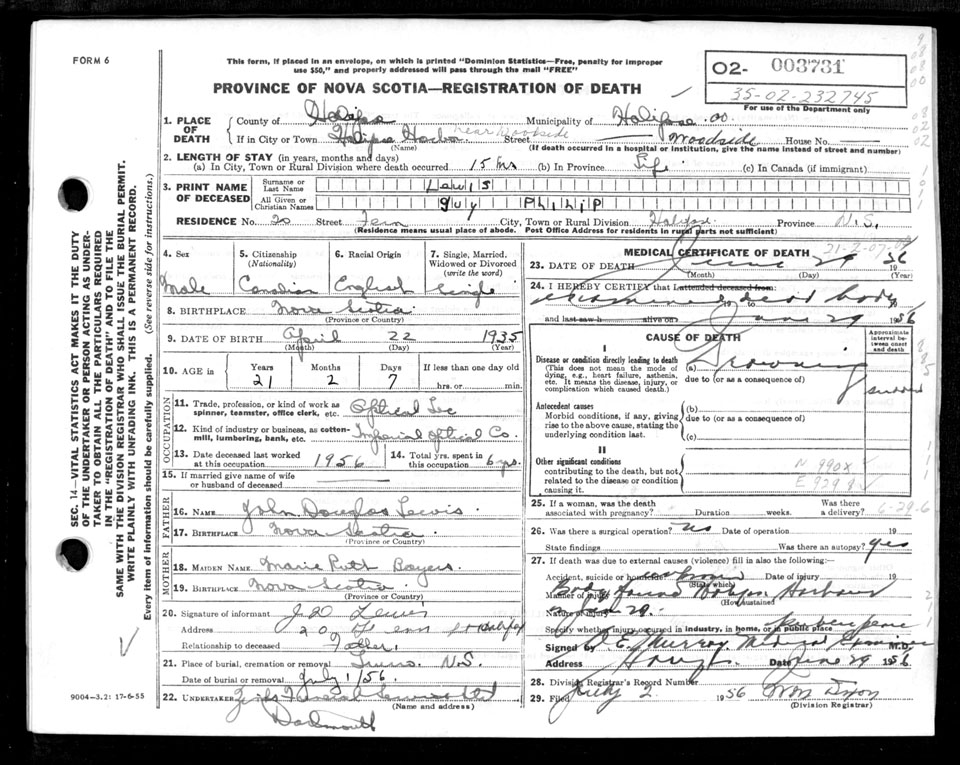 FORM 6
This form, if placed in an envelope, on which is printed "Dominion Statistics—Free, penalty for improper
use $50," and properly addressed will pass through the mail "FREE"
PROVINCE OF NOVA SCOTIA—REGISTRATION OF DEATH
02- 003731
35-02-232745
For use of the Department only
1. PLACE OF DEATH
County of Halifax Municipality of Halifax Co.
If in City or Town Halifax Harbor near Woodside Street Woodside House No.
(Name) (If death occurred in a hospital or institution, give the name instead of street and number)
2. LENGTH OF STAY (in years, months and days)
(a) In City, Town or Rural Division where death occurred 15 (b) In Province Life (c) In Canada (if immigrant)
3. PRINT NAME OF DECEASED
Surname or Last Name Lewis
All Given or Christian Names Guy Philip
RESIDENCE No. 20 Street Fenn City, Town or Rural Division Halifax Province N.S.
(Residence means usual place of abode. Post Office Address for residents in rural parts not sufficient)
4. Sex
Male
5. Citizenship (Nationality)
Canadian
6. Racial Origin
English
7. Single, Married, Widowed or Divorced (write the word)
Single
8. BIRTHPLACE Nova Scotia
(Province or Country)
9. DATE OF BIRTH April 22 1935
(Month) (Day) (Year)
10. AGE IN
Years Months Days If less than one day old
21 2 7 hrs. or min.
OCCUPATION
11. Trade, profession, or kind of work as spinner, teamster, office clerk, etc. Optical Tec
12. Kind of industry or business, as cotton-mill, lumbering, bank, etc. Imperial Optical Co.
13. Date deceased last worked at this occupation 1956
14. Total yrs. spent in this occupation 6 yrs.
15. If married give name of wife or husband of deceased
FATHER
16. NAME John Douglas Lewis
17. BIRTHPLACE Nova Scotia
(Province or Country)
MOTHER
18. MAIDEN NAME Marie Ruth Boyers
19. BIRTHPLACE Nova Scotia
(Province or Country)
20. Signature of informant J D Lewis
Address 20 Fenn St Halifax
Relationship to deceased Father
21. Place of burial, cremation or removal Truro. N.S.
Date of burial or removal July 1/56
22. UNDERTAKER Funeral Service Ltd
(Name and address)
Dartmouth
9004—3.21: 17-6-55
MEDICAL CERTIFICATE OF DEATH
23. DATE OF DEATH June 29 1956
(Month) (Day) (Year)
24. I HEREBY CERTIFY that I attended deceased from:
examined dead body
19 to 19
and last saw h alive on June 29 1956
CAUSE OF DEATH
Approximate interval between onset and death
I
Disease or condition directly leading to death
(This does not mean the mode of dying, e.g., heart failure, asthenia, etc. It means the disease, injury, or complication which caused death.)
(a) Drowning
due to (or as a consequence of)
Antecedent causes
Morbid conditions, if any, giving rise to the above cause, stating the underlying condition last.
(b)
due to (or as a consequence of)
(c)
II
Other significant conditions
contributing to the death, but not related to the disease or condition causing it.
N 990X
E 929
25. If a woman, was the death associated with pregnancy? Duration weeks. Was there a delivery?
6-29-6
26. Was there a surgical operation? No Date of operation 19
State findings Was there an autopsy? Yes
27. If death was due to external causes (violence) fill in also the following:
Accident, suicide or homicide Date of injury 19
(State which)
Manner of injury Body found Harbour
(How sustained)
Nature of injury June 29.
Specify whether injury occurred in industry, in home, or in public place
Signed by Murray Medical Examiner M.D.
Address Date June 29 1956
28. Division Registrar's Record Number
29. Filed July 2 1956 Wm Dixon
(Division Registrar)
SEC. 14—VITAL STATISTICS ACT MAKES IT THE DUTY
OF THE UNDERTAKER OR PERSON ACTING AS UNDER-
TAKER TO OBTAIN ALL THE PARTICULARS REQUIRED
IN THE "REGISTRATION OF DEATH" AND TO FILE THE
SAME WITH THE DIVISION REGISTRAR WHO SHALL ISSUE THE BURIAL PERMIT.
WRITE PLAINLY WITH UNFADING INK. THIS IS A PERMANENT RECORD.
Every item of information should be carefully supplied. (See reverse side for instructions.)